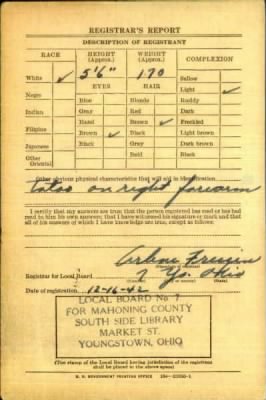 REGISTRAR'S REPORT
DESCRIPTION OF REGISTRANT
RACE HEIGHT (Approx.) WEIGHT (Approx.) COMPLEXION
White ✓ 5'6" 170 Sallow
Light ✓
EYES HAIR
Negro Blue Blonde Ruddy
Indian Gray Red Dark
Filipino Hazel Brown ✓ Freckled
Brown ✓ Black Light brown
Japanese Black Gray Dark brown
Other Oriental Bald Black
Other obvious physical characteristics that will aid in identification
Tatoo on right forearm
I certify that my answers are true; that the person registered has read or has had
read to him his own answers; that I have witnessed his signature or mark and that
all of his answers of which I have knowledge are true, except as follows:
Arlene
Registrar for Local Board 7 Yo. Ohio
(State)
Date of registration 12-16-42
LOCAL BOARD No 7
FOR MAHONING COUNTY
SOUTH SIDE LIBRARY
MARKET ST.
YOUNGSTOWN, OHIO
(The stamp of the Local Board having jurisdiction of the registrant
shall be placed in the above space.)
U. S. GOVERNMENT PRINTING OFFICE